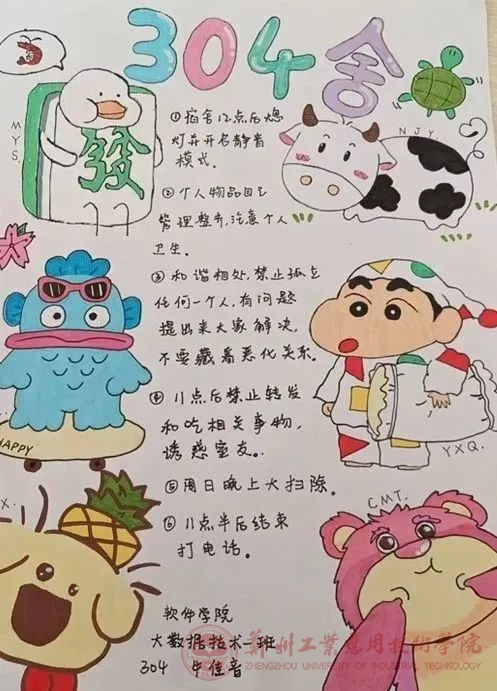 304舍
MYS.
發
NJY.
①宿舍12点后熄
灯并开启静音
模式.
②个人物品自己
管理整齐,注意个人
卫生.
③和谐相处,禁止孤立
任何一个人,有问题
提出来大家解决,
不要藏着恶化关系.
④11点后禁止转发
和吃相关事物,
诱惑室友.
HAPPY
YXQ.
⑤周日晚上大扫除.
X.
CMT.
⑥11点半后结束
打电话.
软件学院
大数据技术一班
304 牛佳音
郑州工业应用技术学院
ZHENGZHOU UNIVERSITY OF INDUSTRIAL TECHNOLOGY